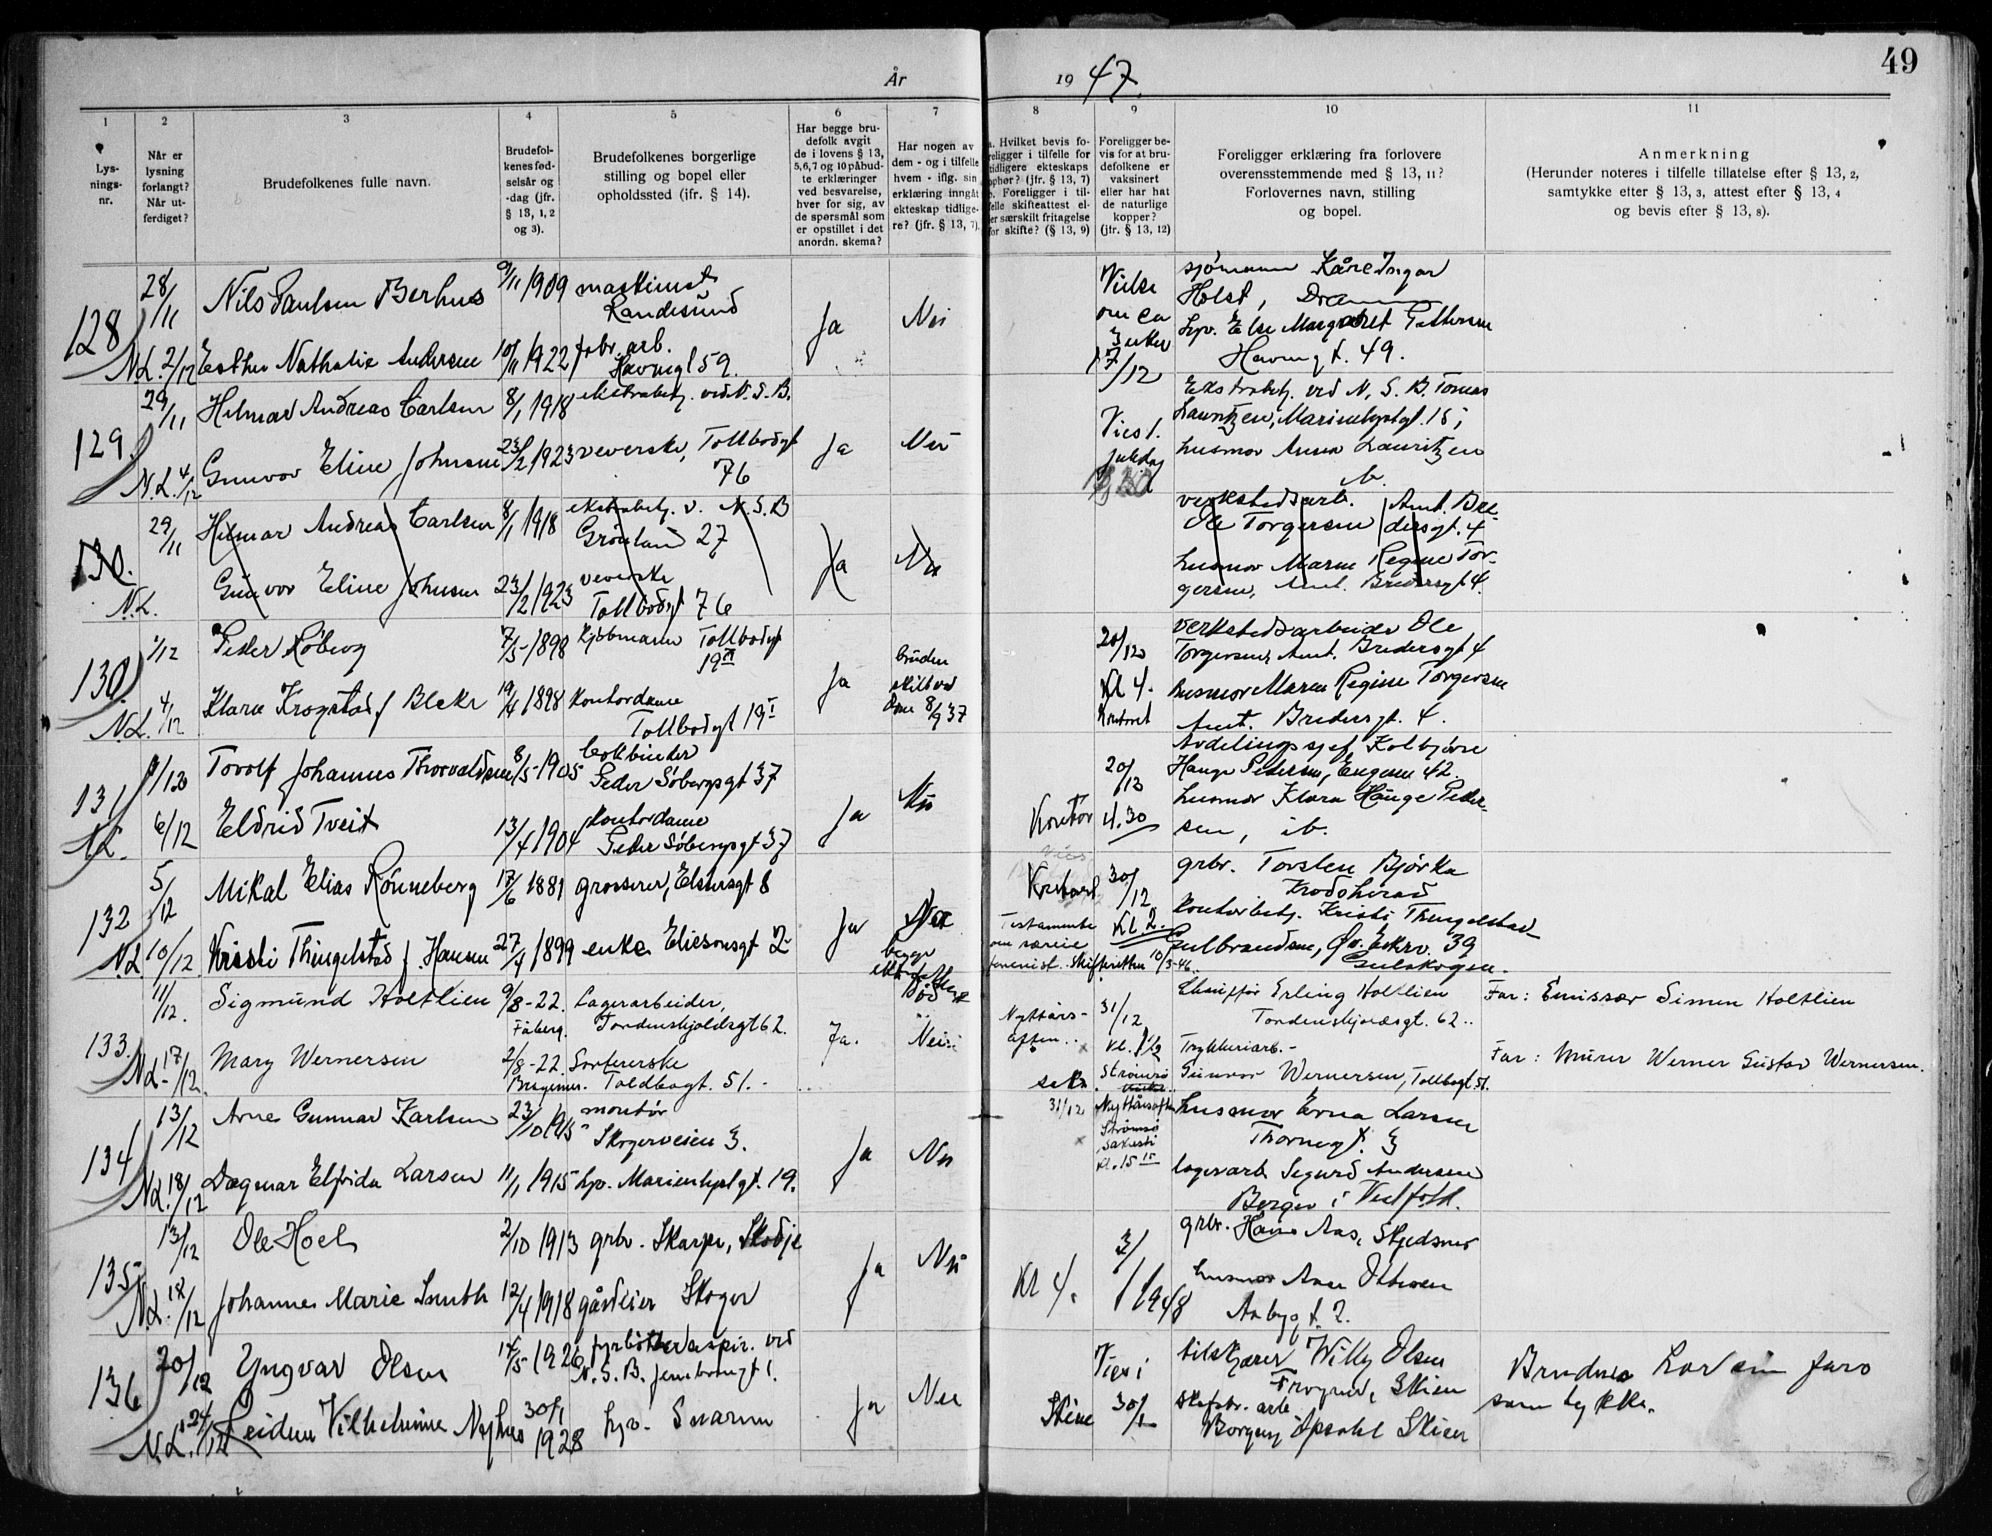 49
År 1947.
1
2
3
4
5
6
7
8
9
10
11
Lys-
nings-
nr.
Når er
lysning
forlangt?
Når ut-
ferdiget?
Brudefolkenes fulle navn.
Brudefol-
kenes fød-
selsår og
-dag (jfr.
§ 13, 1, 2
og 3).
Brudefolkenes borgerlige
stilling og bopel eller
opholdssted (jfr. § 14).
Har begge bru-
defolk avgit
de i lovens § 13,
5,6,7 og 10 påbud-
te erklæringer
ved besvarelse,
hver for sig, av
de spørsmål som
er opstillet i det
anordn. skema?
Har nogen av
dem - og i tilfelle
hvem - iflg. sin
erklæring inngåt
ekteskap tidlige-
re? (jfr. § 13, 7).
a. Hvilket bevis fo-
religger i tilfelle for
tidligere ekteskaps
ophør? (jfr. § 13, 7)
b. Foreligger i til-
felle skifteattest el-
ler særskilt fritagelse
for skifte? (§ 13, 9)
Foreligger be-
vis for at bru-
defolkene er
vaksinert
eller har hat
de naturlige
kopper?
(jfr. § 13, 12)
Foreligger erklæring fra forlovere
overensstemmende med § 13, 11?
Forlovernes navn, stilling
og bopel.
Anmerkning
(Herunder noteres i tilfelle tillatelse efter § 13, 2,
samtykke efter § 13, 3, attest efter § 13, 4
og bevis efter § 13, 8).
128
28/11
Nils Paulsen Berhus
9/11 1909
maskinist
Randesund
N.L. 2/12
Esther Nathalie Andersen
10/11 1922
fabr. arb.
Havnegt 59.
Ja
Nei
Vielse
om ca
3 uker
17/12
sjømann Kåre Ingar
Holst, Drammen
hpv. Else Margaret Pettersen
Havnegt. 49.
129.
29/11
Hilmar Andreas Carlsen
8/1 1918
ekstrabetj. ved N.S.B.
N.L. 4/12
Gunvor Eline Johnsen
23/2 1923
veverske, Tollbodgt
76
Ja
Nei
Vies 1.
juledag
Ekstrabetj. ved N.S.B. Tomas
Lauritzen, Marienlystgt. 18;
husmor Anna Lauritzen
ib.
130.
29/11
Hilmar Andreas Carlsen
8/1 1918
ekstrabetj. v. N.S.B
Grønland 27
N.L.
Gunvor Eline Johnsen
23/2 1923
veverske
Tollbodgt 76
Ja
Nei
verkstedsarb.
Ole Torgersen Amt. Bre-
dersgt. 4
husmor Maren Regine Tor-
gersen, Amt. Bredersgt 4.
130.
1/12
Peder Røberg
7/5 1898
Kjøbmann Tollbodgt
19 II
N.L. 4/12
Klara Krogstad f Bleker
19/4 1898
Kontordame
Tollbodgt 19 I
Ja
bruden
skilt ved
dom 8/9 37
20/12
Kl 4.
Kontoret
verkstedsarbeider Ole
Torgersen, Amt. Bredersgt 4
husmor Maren Regine Torgersen
Amt. Bredersgt. 4.
131
1/12
Torolf Johannes Thorvaldsen
8/5 1905
Peder Søbergsgt 37
N.L. 6/12
Eldrid Tveit
13/4 1904
Kontordame
Peder Søbergsgt 37
Ja
Nei
Kontor
20/12
4.30
Avdelingssjef Kolbjørn
Hauge Petersen, Engene 42.
husmor Klara Hauge Peter-
sen, ib.
132
5/12
Mikal Elias Rønneberg
17/6 1881
grosserer, Elsersgt 8
N.L 10/12
Kristi Thingelstad f. Hansen
27/4 1899
enke Eliesonsgt 2
Ja
Nei
begge
død
Kontoret
Testamente
om særeie
Skifteretten 10/3-46
30/12
Kl. 2.
grbr. Torsten Bjørka
Krødsherad
Kontorbetj. Kristi Thingelstad
Gulbrandsen, Øv. Eikrv. 39
Gulskogen.
133.
11/12.
Sigmund Holtlien
9/8-22.
Fåberg.
Lagerarbeider,
Tordenskjoldsgt 62.
N.L. 17/12.
Mary Wernersen
2/8-22.
Bragernes.
Sortererske
Toldbogt. 51.
Ja.
Nei.
Nyttårs-
aften..
sakr.
31/12
kl. 1 1/2
Strømsø
Chauffør Erling Holtlien
Tordenskjoldsgt. 62..
Trykkeriarb.-
Gunvor Wernersen, Tollbogt 51.
Far: Emissær Simen Holtlien
Far: Murer Werner Gustav Wernersen.
134
13/12
Arne Gunnar Karlsen
23/10 1915
montør
Skogerveien 3.
N.L. 18/12
Dagmar Elfrida Larsen
11/1 1915
hpv. Marienlystgt. 19.
Ja
Nei
31/12
Nyttårsaften
Strømsø
sakristi
kl. 15 15
husmor Erna Larsen
Thornegt. 3
lagerarb Sigurd Andersen
Berger i Vestfold.
135
13/12
Ole Hoel
2/10 1913
grbr. Skarpe, Skodje
N.L. 18/12
Johanne Marie Smith
12/4 1918
gårdeier Skoger
Ja
Nei
Kl 4.
3/1 1948
grbr. Hans Aas, Skjedsmo
husmor Aase Ottesen
Aabygt. 2.
136
20/12
Yngvar Olsen
14/5 1926
fyrbøteraspir. ved
N.S.B. Jernbanegt 1.
N.L. 24/12
Reidun Vilhelmine Nyhus
30/1 1928
hpv. Snarum
Ja
Nei
Vies i
Skien
30/1
tilskjærer Willy Olsen
Frogner, Skien
skofabr. arb
Borgny Opsahl Skien
Brudens far sam
samtykke.